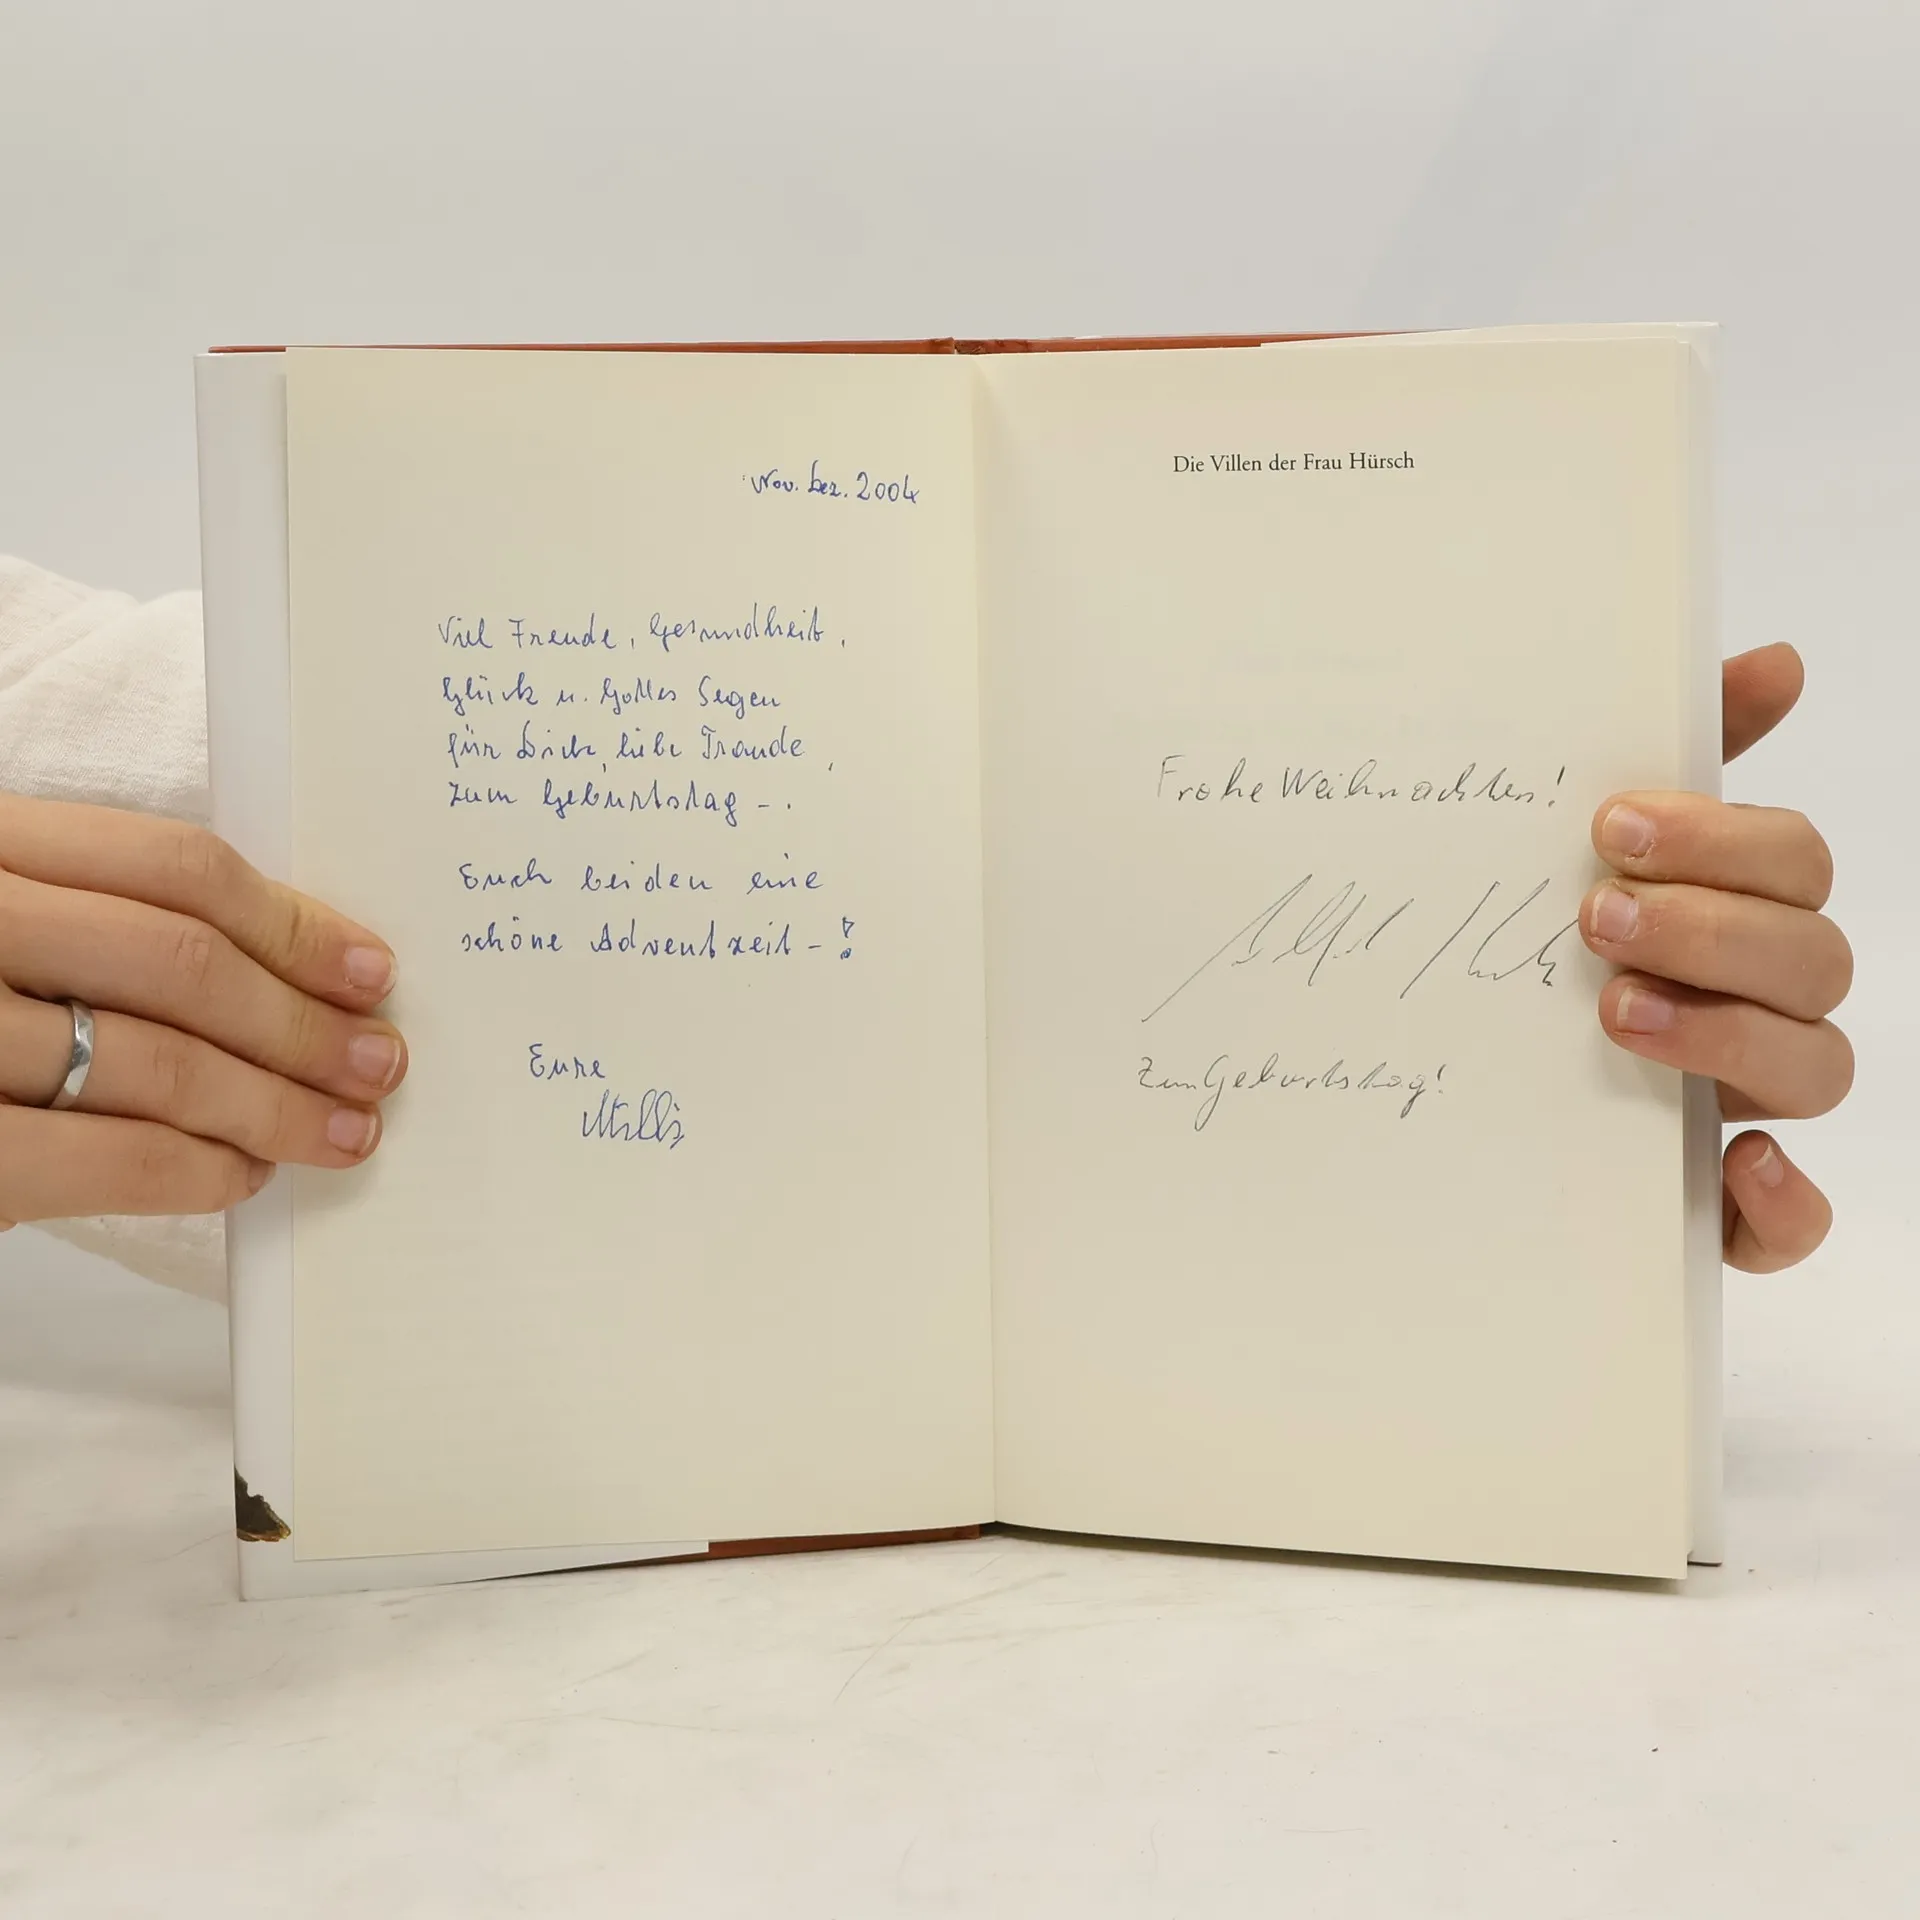 Nov. Dez. 2004
Viel Freude, Gesundheit,
Glück u. Gottes Segen
für Dich, liebe Traude,
zum Geburtstag - .
Euch beiden eine
schöne Adventzeit - !
Eure
Die Villen der Frau Hürsch
Frohe Weihnachten!
Alfred
Zum Geburtstag!